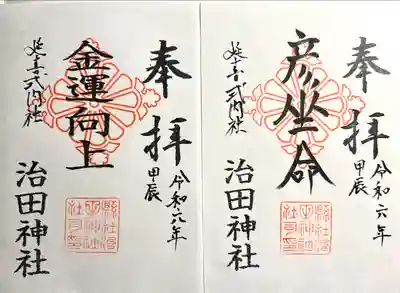 奉拝
令和六年
甲辰
金運向上
延喜式内社
治田神社
奉拝
令和六年
甲辰
彦坐命
延喜式内社
治田神社